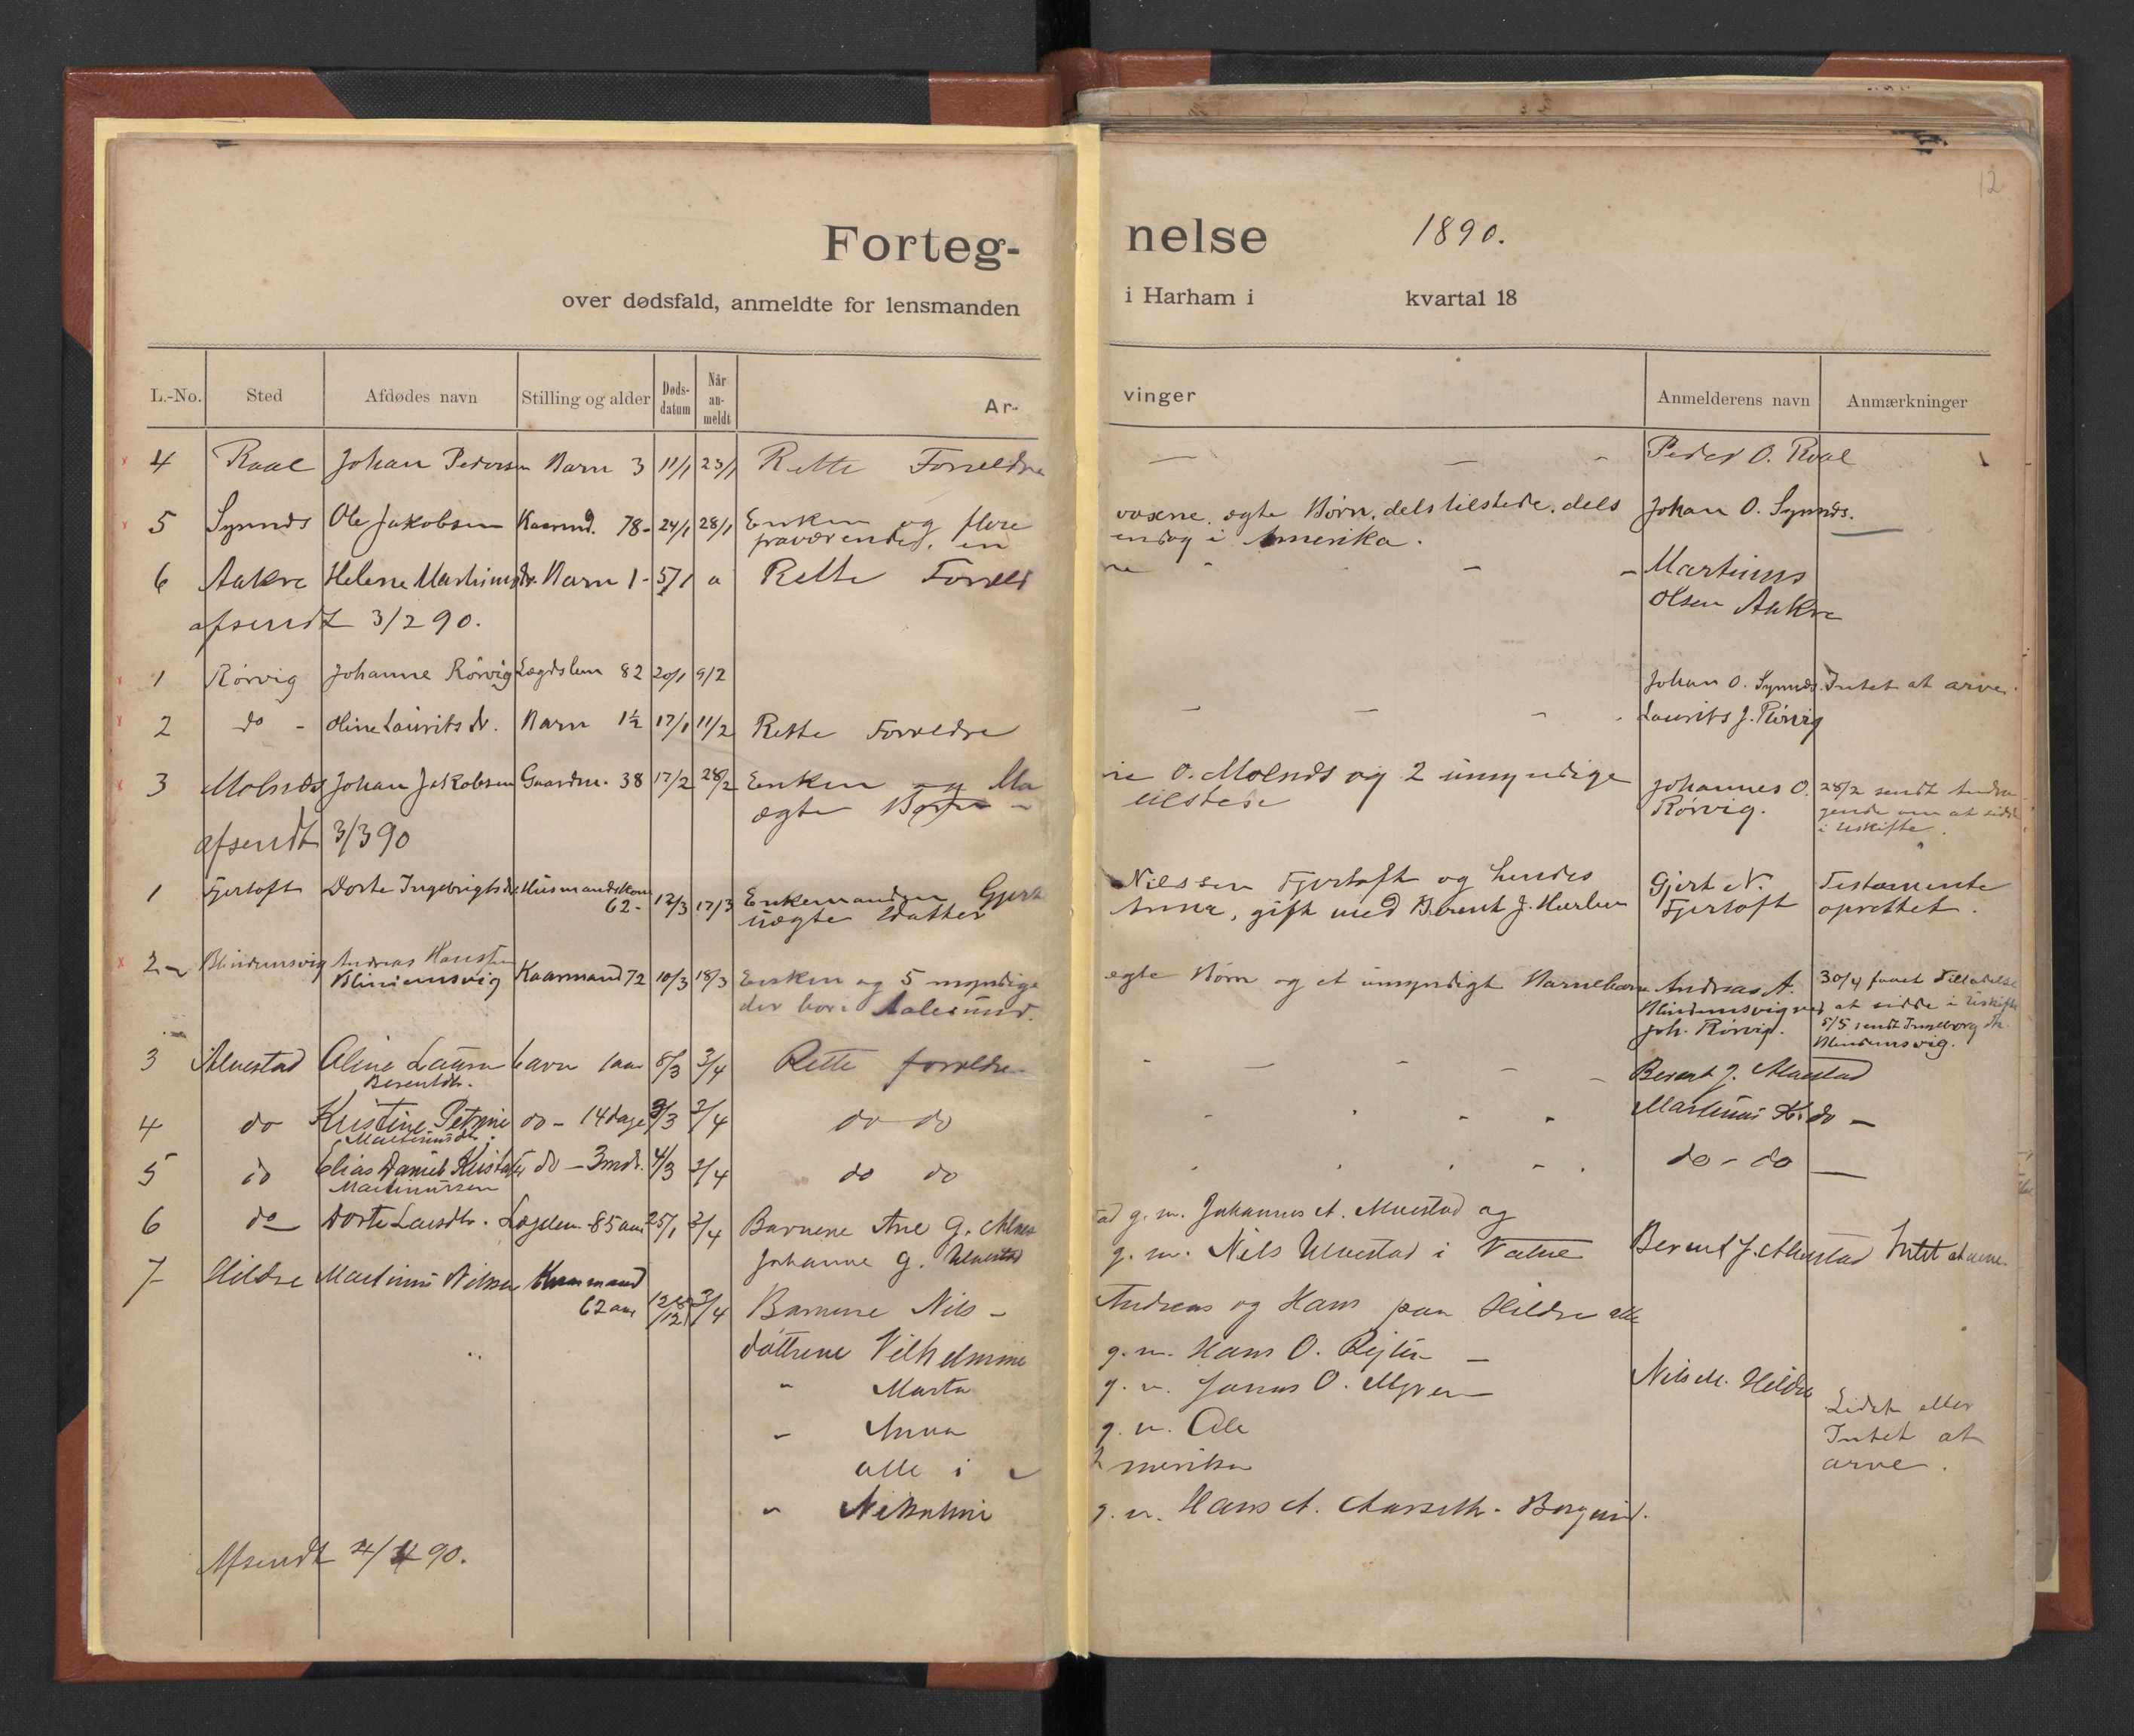 12
Forteg-nelse 1890.
over dødsfald, anmeldte for lensmanden i Harham i kvartal 18
L.-No. Sted Afdødes navn Stilling og alder Døds-datum Når an-meldt Ar-vinger Anmelderens navn Anmærkninger
4 Roal Johan Pedersen Barn 3 11/1 23/1 Rette Forældre — — - Peder O. Roal
5 Synnæs Ole Jakobsen Kaarmd. 78- 24/1 28/1 Enken og flere voxne, ægte Børn, dels tilstede, dels Johan O. Synnæs.
fraværende, en endog i Amerika.
6 Aakre Helene Martinusdr. Barn 1- 5/1 Rette Forældre - - - Martinus
Olsen Aakre
afsendt 3/2 90.
1 Rörvig Johanne Rörvig Lægdslem 82 20/1 9/2 Johan O. Synnæs. Intet at arve.
2 do - Oline Laurits dr. Barn 1½ 17/1 11/2 Rette Forældre - - - Laurits J. Rörvig
3 Molnæs Johan Jakobsen Gaardm. 38 17/2 28/2 Enken og O. Molnæs og 2 umyndige Johannes O. 28/2 sendt Andra-
ægte Børn - tilstede Rörvig. gende om at sidde
i Uskifte.
afsendt 3/3 90
1 Fjertoft Dorte Ingebrigtsdr Husmandskone 12/3 17/3 Enkemanden Gjert Nilssen Fjertoft og hendes Gjert N. Testamente
62- uægte Datter Anne, gift med Berent J. Fjertoft oprettet.
2 Blindemsvig Andreas Hansen Kaarmand 72 10/3 18/3 Enken og 5 myndige ægte Børn og et umyndigt Barnebarn Andreas A. 30/4 faaet Tilladelse
Blindemsvig der bor i Aalesund. Blindemsvig ved at sidde i Uskifte
Joh. Rörvig. 5/5 sendt Ingeborg
Blindemsvig.
3 Ulvestad Oline Laura barn 1 aar 8/3 3/4 Rette forældre - - - - - Berent J. Ulvestad
Berentdr.
4 do Kristine Petrine do - 14 dage 3/3 3/4 do do - - - - Martinus K. do -
Martinusdr.
5 do Elias Daniel do - 3 mdr. 4/3 3/4 do do - - - - do - do —
Martinussen
6 do Dorte Larsdtr. Lægdlem - 85 aar 25/1 3/4 Barnene Ane G. g. m. Johannes A. Ulvestad og
Johanne G. Ulvestad g. m. Nils Ulvestad i Vatne Berent J. Ulvestad Intet at arve.
7 Hildre Martinus Nilsen Kaarmand
62 aar 3/4 Barnene Nils - Andreas og Hans paa Hildre
døttrene Vilhelmine g. m. Hans O. —
" Marta g. m. Jonas O. Myren — Nils M. Hildre
Lidet eller
- Anna g. m. Ole Intet at
alle i Amerika arve.
" g. m. Hans A. Aarseth - Borgund.
Afsendt 4/4 90.